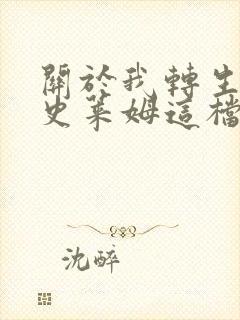 關於我轉生
史萊姆這檔
沈醉